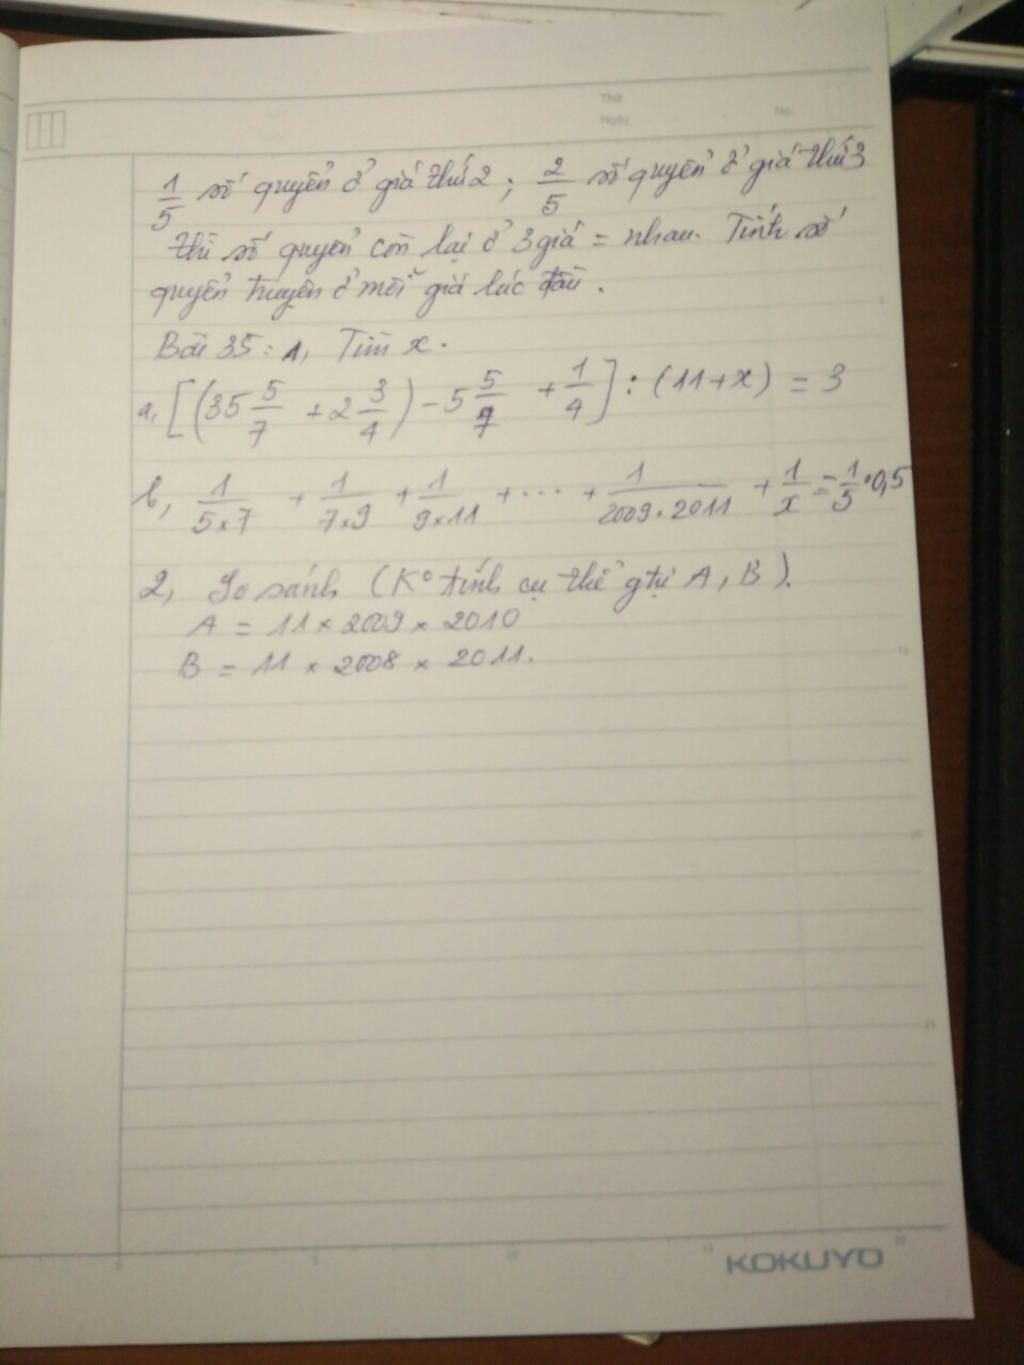 Thứ
Ngày No.
1/5 số quyển ở giá thứ 2 ; 2/5 số quyển ở giá thứ 3
thì số quyển còn lại ở 3 giá = nhau. Tính số
quyển truyện ở mỗi giá lúc đầu.
Bài 35 : 1, Tìm x.
a, [(35 5/7 + 2 3/4) - 5 5/7 + 1/4] : (11 + x) = 3
b, 1/5×7 + 1/7×9 + 1/9×11 + ... + 1/2009.2011 + 1/x = 1/5 . 0,5
2, So sánh (K° tính cụ thể gtrị A, B).
A = 11 × 2009 × 2010
B = 11 × 2008 × 2011.
KOKUYO